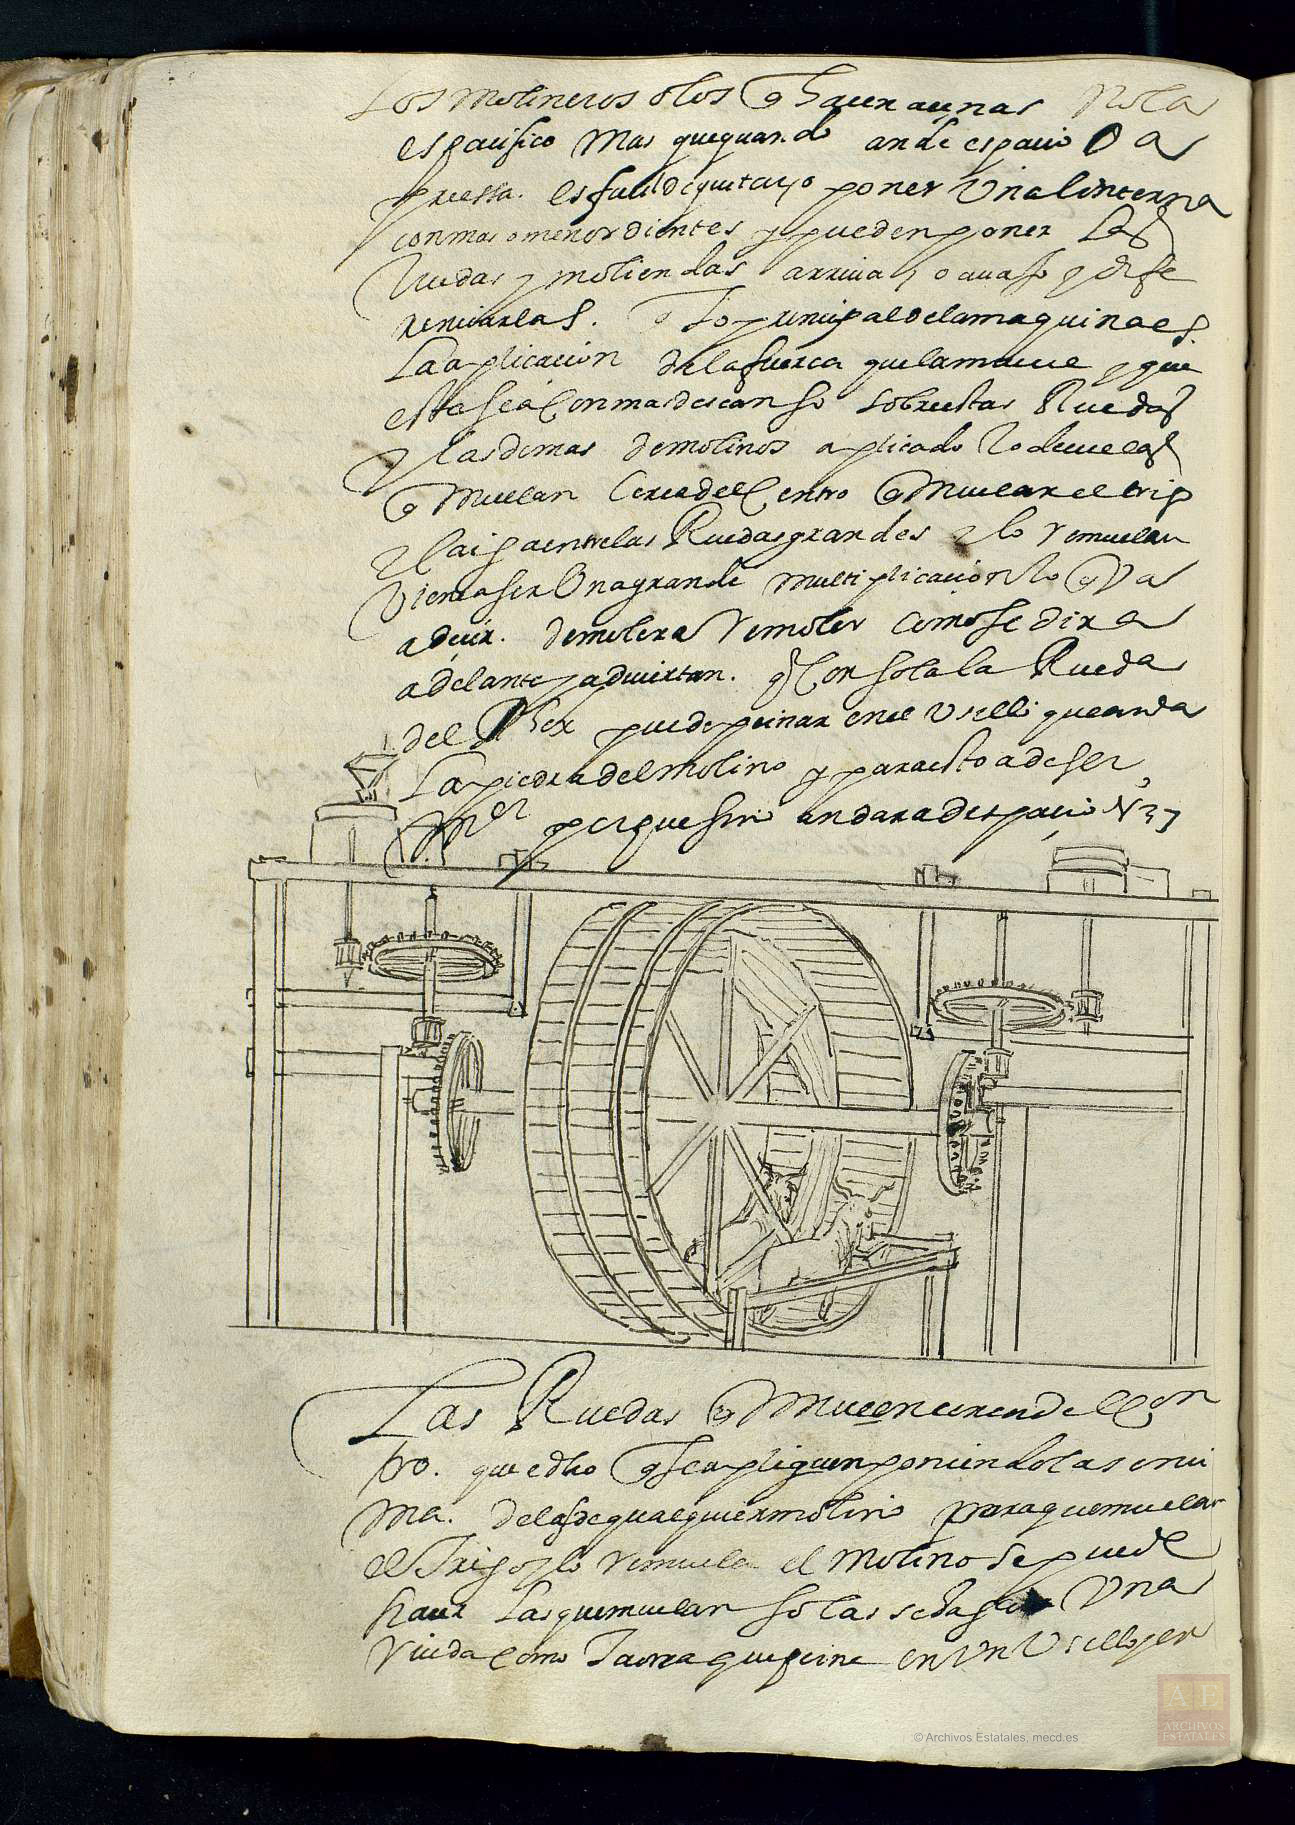 Los molineros o los q haceraunas Nola
espacifico mas que quando ande espacio O a
pressa. es facil de quitar, o poner Una linterna
con mas o menor dientes y pueden poner las
Ruedas y moliendas arriua, o auajo y dife
renciarlas. Lo principal de la maquina es
La aplicacion de la fuerca que la mueue y que
esta sea Con mas descanso sobre estas Ruedas
y las demas de molinos aplicado
q muelan Cerca del Centro q muelan el trig
entre las Ruedas grandes y lo Remuelan
Viene a ser Una grande multiplicacion lo q Va
a decir. de moler a Remoler como se dira
adelante y aduiertan. q Con sola la Rueda
del puede peinar en el Usillo que anda
La piedra del molino y para esto a de ser
mor porque sino andara despacio N 37
Las Ruedas q Mueuen cerca del Cen
tro. que digo q se apliquen poniendolas enci
ma. de las de qualquier molino para que muelan
el Trigo y lo remuela el molino se puede
hacer Las que muelan solas Una
Rueda Como Taona que peine en Un Usillo yen
© Archivos Estatales, mecd.es
AE
ARCHIVOS
ESTATALES